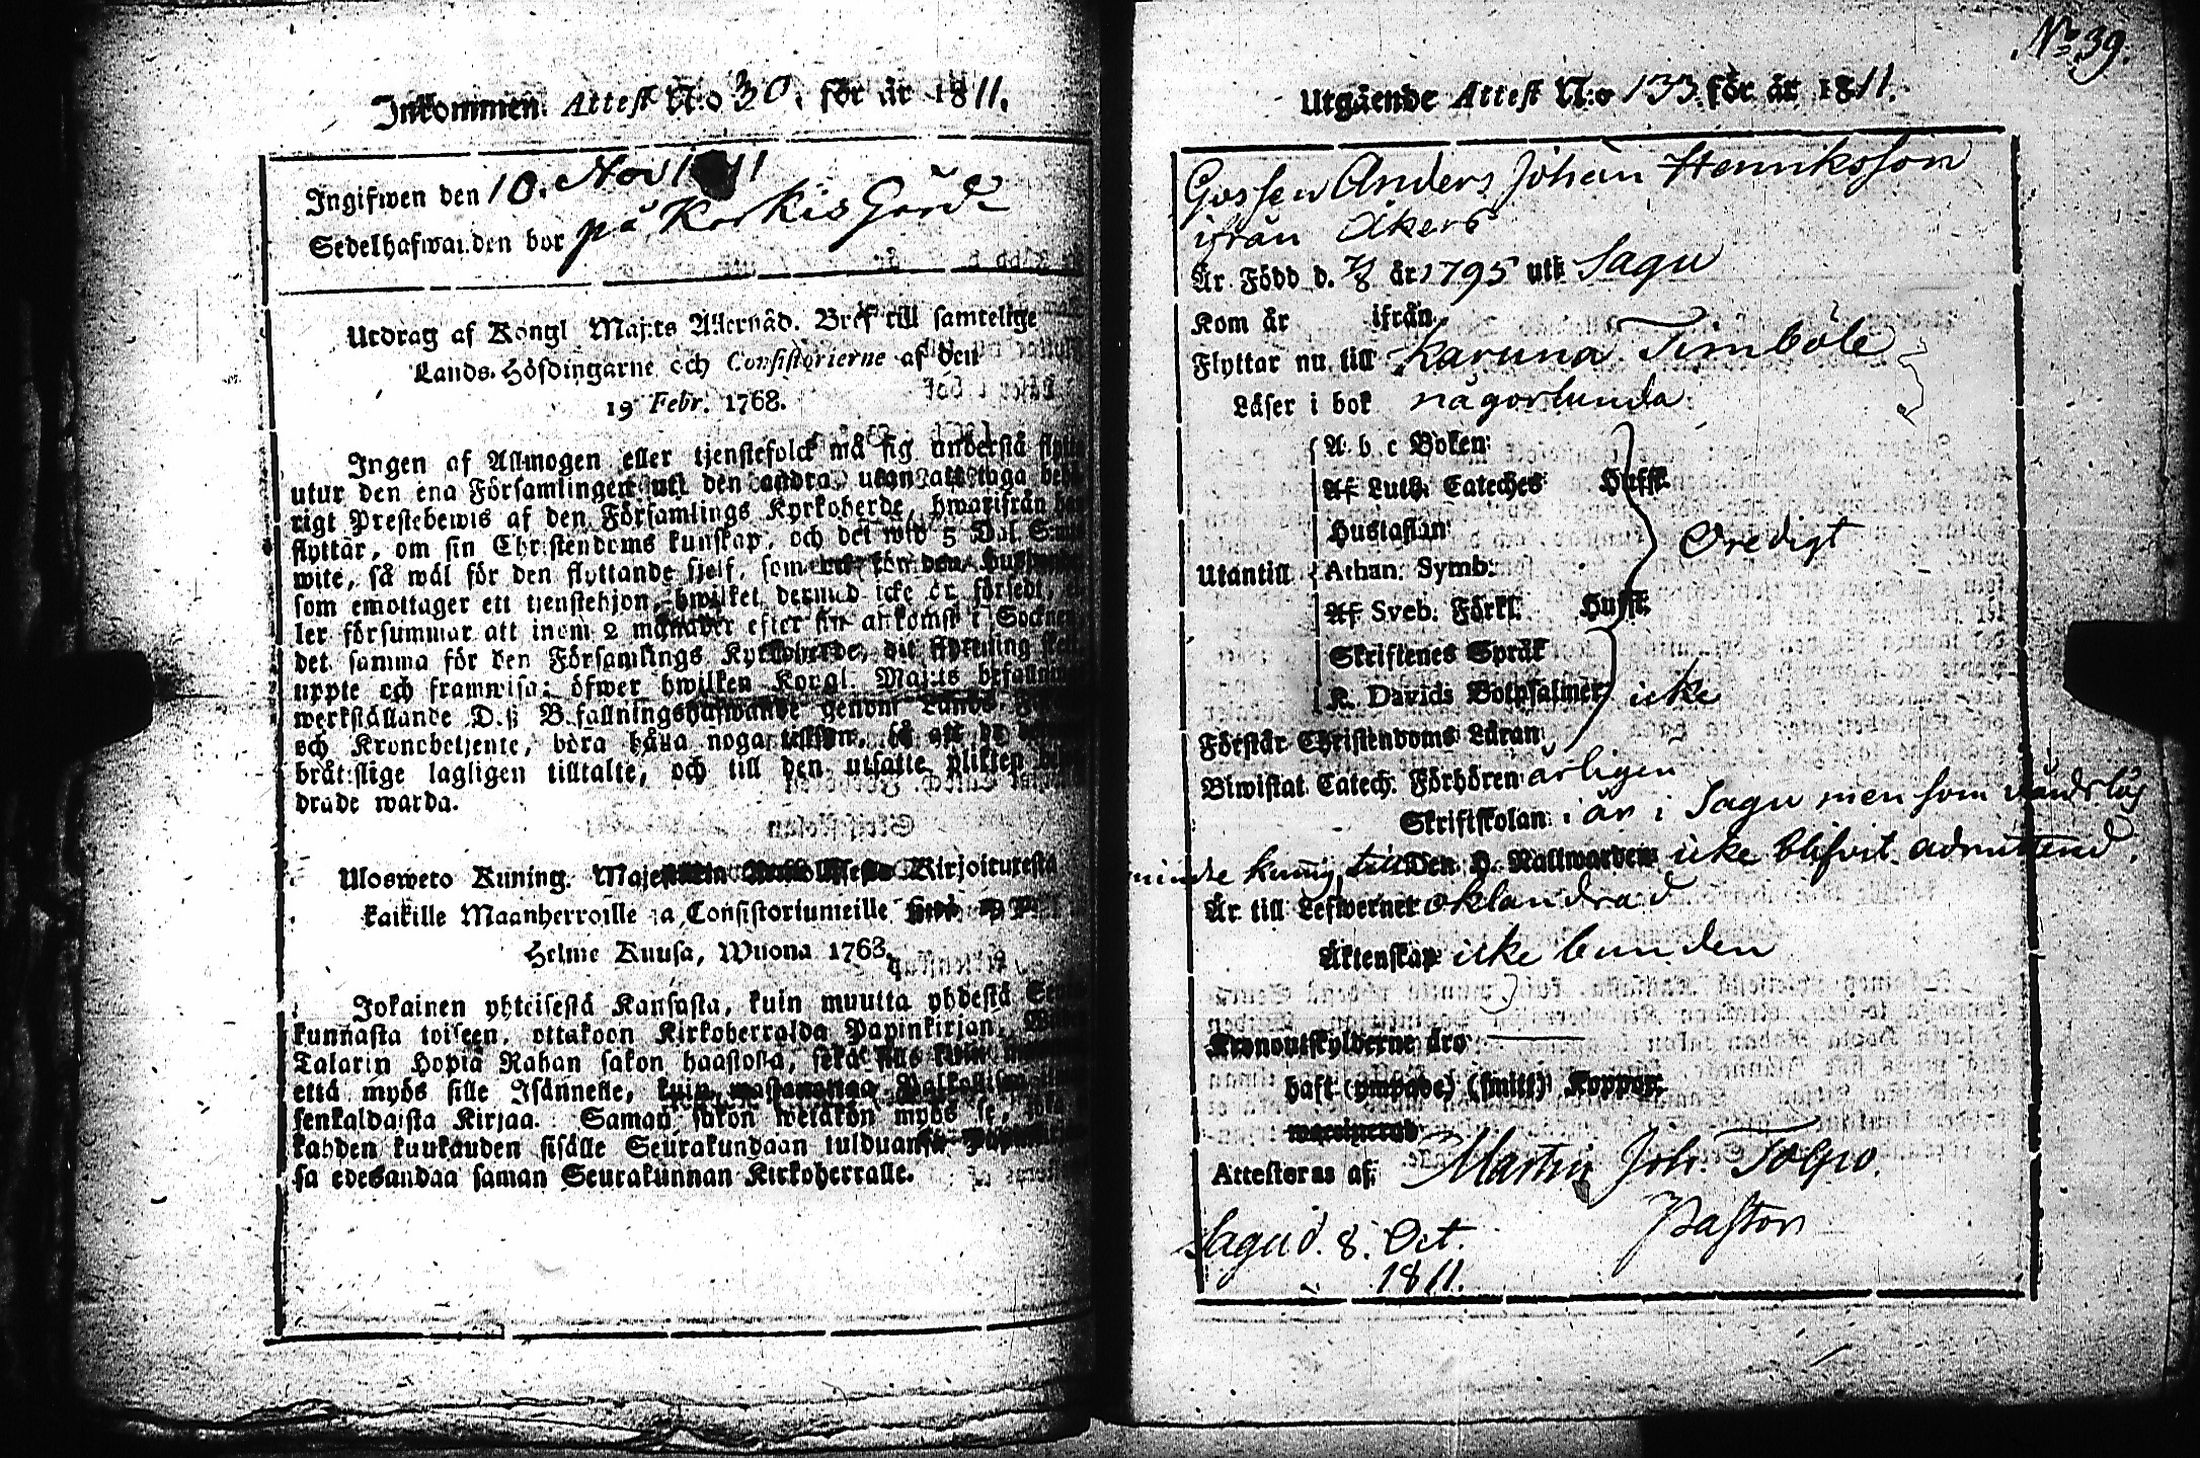 Inkommen Attest N:o 30. för år 1811.
Ingifwen den 10. Nov 1811
Sedelhafwanden bor på Korkis Gård
Utdrag af Kongl Maj:ts Allernåd. Bref till samtelige
Lands-Höfdingarne och Consistorierne af den
19 Febr. 1768.
Ingen af Allmogen eller tjenstefolck må sig understå
utur den ena Församlingen uti den andra utan att taga
rigt Prestebewis af den Församlings Kyrkoherde, hwarifrån
flyttar, om sin Christendoms kunskap, och det wid 5 Dal
wite, så wäl för den flyttande sjelf, som
som emottager ett tjenstehjon, hwilket dermed icke är försedt,
ler försummar att inom 2 månader efter sin ankomst i
det samma för den Församlings Kyrkoherde, dit
uppte och framwisa: öfwer hwilken Kongl. Maj:ts
werkställande D.ß B.fallningshafwande genom Lands
och Kronobetjente, böra hålla noga
bråtslige lagligen tilltalte, och till den utsatte plikten
drade warda.
Ulosweto Kuning. Kirjoituxesta
kaikille Maanherroille ja Consistoriumeille
Helme Kuusa, Wuona 1763.
Jokainen yhteisestä Kansasta, kuin muutta yhdestä
kunnasta toiseen, ottakoon Kirkoherralda Papinkirjan,
Talarin Hopia Rahan sakon haastolla,
että myös sille Isännelle,
senkaldaista Kirjaa. Saman sakon wetäkön myös se,
kahden kuukauden sisälle Seurakundaan tulduansa
sa edesandaa saman Seurakunnan Kirkoherralle.
No 39.
Utgående Attest N:o 133 för år 1811.
Gossen Anders Johan Henriksson
ifrån Åkers
Är Född d. 7/8 år 1795 uti Sagu
Kom år ifrån
Flyttar nu till Karuna Timböle
Läser i bok någorlunda
A b c Boken
Af Luth. Cateches Hufst.
Hustaflan
Oredigt
Utantill Athan: Symb:
Af Sveb. Förkl. Hufst.
Skriftenes Språk
K. Davids Botpsalmer icke
Förstår Christendoms Läran
Biwistat Catech. Förhören årligen
Skriftskolan i år i Sagu men som
Den H. Nattwarden icke blifvit admitterad.
Är till Lefwernet oklandrad
Äktenskap icke bunden
Kronoutskylderne äro
haft (ympade) (smitt) Koppor
Attesteras af Martin Joh: Tolpo.
Pastor
Sagu d. 8. Oct.
1811.